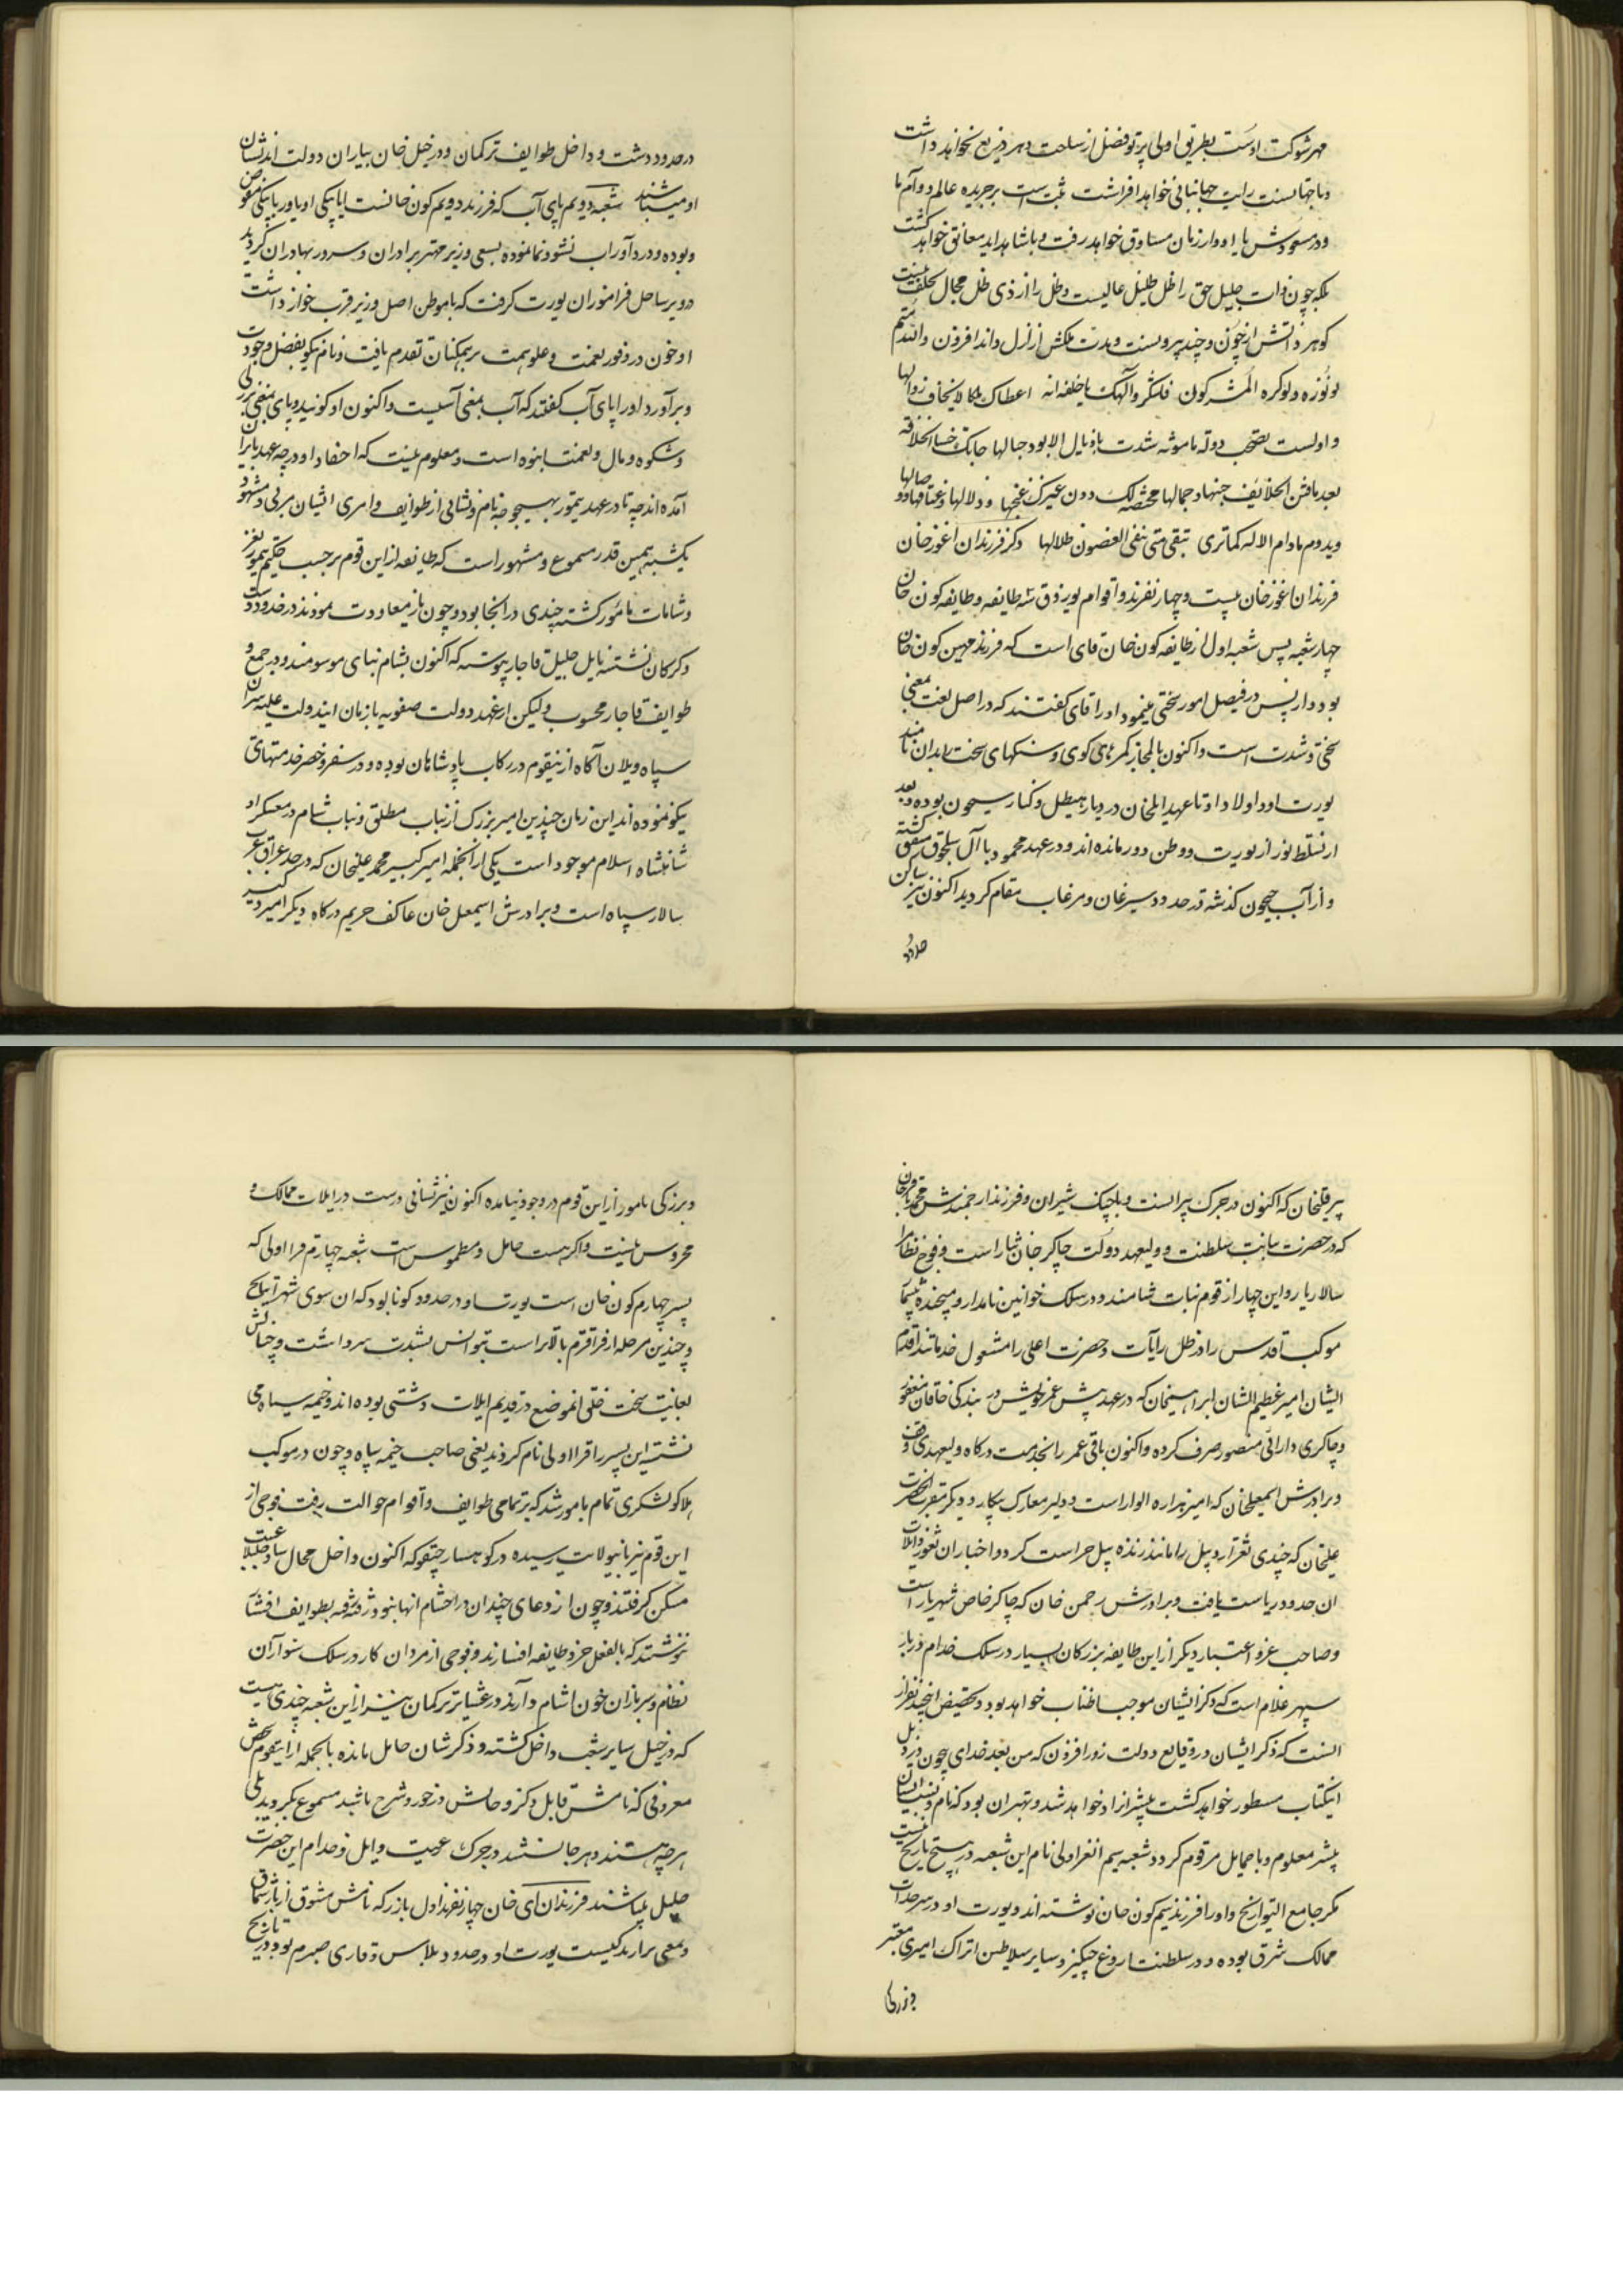 مهر شوکت اوست بطریق اولی پرتو فضل از ساحت دهر دریغ نخواهد داشت
رایت جهانبانی خواهد افراشت ثبت است بر جریده عالم دوام ما
خواهد رفت و با شاهد ابد معانق خواهد گشت
بلکه چون ذات جلیل حق را ظل ظلیل عالیست و ظل را از ذی ظل مجال تخلف نیست
گوهر ذاتش از چون و چند پیرو نست و مدت ملکش از ازل و ابد افزون والله متم
نوره ولو کره المشرکون
بعد ما فتن الخلایف
ویدوم مادام الاله کماتری تبقی متی تنفی الغصون ظلالها ذکر فرزندان اغوزخان
فرزندان اغوزخان بیست و چهار نفرند و اقوام اویزوق شه طایفه و طایفه کون خان
چهار شعبه پس شعبه اول از طایفه کون خان قای است که فرزند مهین کون خان
بود در فیصل امور سختی مینمود او را قای گفتند که در اصل لغت بمعنی
سختی و شدت است و اکنون بالمجاز کمرهای کوی و سنگهای سخت را بدان نامند
یورت او و اولاد او تا عهد ایلخان در دیار هیطل و کنار سیحون بوده و بعد
از تسلط نوز از یورت و وطن دور مانده اند و در عهد محمود با آل سلجوق متفق گشته
و از آب جیحون گذشته در حدود سیرغان و مرغاب مقام کردید اکنون نیز ساکن
حدود
در حدود دشت و داخل طوایف ترکمان و در خیل خان بیاران دولت اند نشان
او میباشند شعبه دویم بای آب که فرزند دویم کون خانست
و بوده و در دآوراب نشو و نما نموده بسعی وزیر مهتر برادران و سرور بهادران گردید
در ویر ساحل قراموران یورت گرفت که با موطن اصل وزیر قرب جوار داشت
او خون در وفور نعمت و علو همت بر همکنان تقدم یافت و نام نیکو بفضل وجود
و برآورد او را بای آب گفتند که آب بمعنی آنست و اکنون او کونید و بای بمعنی بزرگی
و شکوه و مال و نعمت انبوه است و معلوم نیست که احفاد او در چه عهد بایران
آمده اند چه تا در عهد تیمور بهیچوجه نام و نشانی از طوایف و امری ایشان مرئی و مشهود
نیست همین قدر مسموع و مشهور است که طایفه از این قوم بر حسب حکم تیمور بغز
و شامات مامور گشته چندی در انجا بود و چون باز معاودت نمودند در حدود دشت
و کرکان نشسته بایل جلیل قاجار پیوسته که اکنون بشام بیاتی موسومند و در جمع و
طوایف قاجار محسوب ولیکن از عهد دولت صفویه تا زمان ایندولت علیه سران
سپاه و یلان آگاه از اینقوم در رکاب پادشاهان بوده و در سفر و حضر خدمتهای
نیکو نموده اند این زمان چندین امیر بزرگ از بیات مطلق و بیات شام در معسکر او
شاهنشاه اسلام موجود است یکی از آنجمله امیر کبیر محمد علیخان که در حد عراق عرب
سالار سپاه است و برادرش اسمعیل خان عاکف حریم درگاه دیگر امیر کبیر
پیرقلیخان که اکنون در جرگ پیرانست و بلچیک شیران و فرزند ارجمندش محمد باقرخان
که در حضرت نیابت سلطنت و ولیعهد دولت چاکر جان نثار است و فوج نظام را
سالار یار و این چهار از قوم بیات شامند و در سلک خوانین نامدار و پنجده
موکب اقدس را در ظل رآیات و حضرت اعلی را مشغول خدماتند اقدم
ایشان امیر عظیم الشان ابراهیمخان که در عهد پیش عمر خویش در بندگی خاقان مغفور
و چاکری دارائی منصور صرف کرده و اکنون باقی عمر را بخدمت درگاه ولیعهدی وقف
و برادرش اسمعیلخان که امیر هزاره الوار است و دلیر معارک پیکار و دیگر مقرب الحضرت
علیخان که چندی ثغر اردبیل را مانند زنده پیل حراست کرد و اختیاران ثغور و ایلات
ان حدود ریاست یافت و برادرش رحمن خان که چاکر خاص شهریار است
و صاحب عز و اعتبار دیگر از این طایفه بزرگان بسیار در سلک خدام دربار
سپهر غلام است که ذکر ایشان موجب اطناب خواهد بود و تخصیص اینچند نفر از
انست که ذکر ایشان در وقایع دولت روزافزون که من بعد خدای چون در ذیل
اینکتاب مسطور خواهد گشت پیشتر از او خواهد شد و بهتر ان بود که نام و نسب ایشان
پیشتر معلوم و با جمایل مرقوم گردد شعبه سیم القراولی نام این شعبه در هیچ تاریخ نیست
مگر جامع التواریخ و او را فرزند سیم کون خان نوشته اند و یورت او در سرحدات
ممالک شرق بوده و در سلطنت اروغ چنگیز و سایر سلاطین اتراک امیری معتبر
و بزرگی
و بزرگی نامور از این قوم در وجود نیامده اکنون نیز نشانی درست در ایلات ممالک و
محروس نیست و اگر هست خامل و مطموس است شعبه چهارم قرا اولی که
پسر چهارم کون خان است یورت او در حدود کونا بود که ان سوی شهر
و چندین مرحله از قراقرم بالاتر است بشدت سرد است و خیالش
بغایت سخت خلقی انموضع در قدیم ایلات دشتی بوده اند و خیمه سیاه می
نشسته این پسر را قرا اولی نام کردند یعنی صاحب خیمه سیاه و چون در موکب
هلاکو لشکری تمام مامور شد که بر تمامی طوایف و اقوام حوالت رفت فوجی از
این قوم نیز بانیولایت رسیده در کوهسار جغتو که اکنون داخل محال ساوجبلاغ است
مسکن گرفتند و چون ازدعای چندان در احشام انها نبود رفته رفته بطوایف افشار
پیوستند که بالفعل جزو طایفه افشارند و فوجی از مردان کار در سلک سواران
نظام و سربازان خون اشام دارند و در عشایر ترکمان نیز از این شعبه چندی هست
که در خیل سایر شعب داخل گشته و ذکرشان خامل مانده بالجمله از اینقوم شخص
معروفی که نامش قابل ذکر و حالش در خور شرح باشد مسموع نگردید بلی
هر چه هستند و هر جا نشستند در جرگ رعیت و ایل و خدام این حضرت
جلیل میباشند فرزندان آی خان چهار نفرند اول یازر که نامش مشوق از
و بمعنی یورت او در حدود تلاس و قاری صیرم بود و در تاریخ